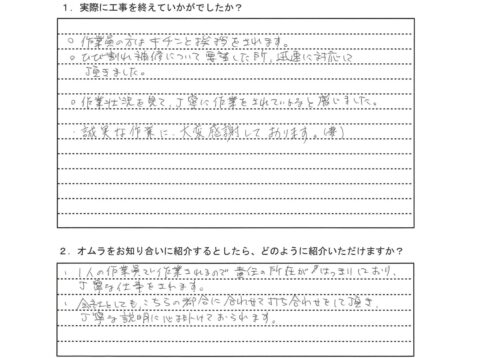 1．実際に工事を終えていかがでしたか？
○ 作業員の方はキチンと挨拶をされます。
○ ひび割れ補修について要望した所、迅速に対応して
頂きました。
○ 作業状況を見て、丁寧に作業をされていると感じました。
・誠実な作業に、大変感謝しております。(妻)
2．オムラをお知り合いに紹介するとしたら、どのように紹介いただけますか？
・1人の作業員で作業されるので責任の所在がはっきりしており、
丁寧な仕事をされます。
・会社としても、こちらの都合に合わせて打ち合わせをして頂き、
丁寧な説明に心掛けておられます。